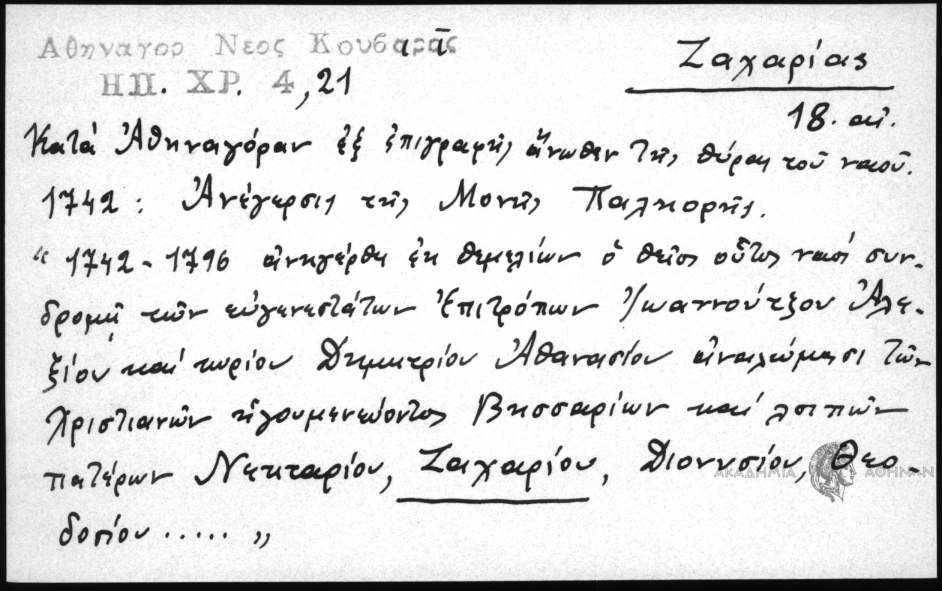 Αθηναγορ Νεος Κουβαρᾶς
ΗΠ. ΧΡ. 4, 21
Ζαχαρίας
18. αἰ.
Κατά Ἀθηναγόραν ἐξ ἐπιγραφῆς ἄνωθεν τῆς θύρας τοῦ ναοῦ.
1742 : Ἀνέγερσις τῆς Μονῆς Παλιορῆς.
“ 1742 - 1796 ἀνηγέρθη ἐκ θεμελίων ὁ θεῖος οὗτος ναός συν-
δρομῇ τῶν εὐγενεστάτων Ἐπιτρόπων Ἰωαννούτζου Ἀλε-
ξίου καί κυρίου Δημητρίου Ἀθανασίου ἀναλώμασι τῶν
Χριστιανῶν ἡγουμενεύοντος Βησσαρίων καί λοιπῶν
πατέρων Νεκταρίου, Ζαχαρίου, Διονυσίου, Θεο-
δοσίου ..... „
ΑΚΑΔΗΜΙΑ ΑΘΗΝΩΝ